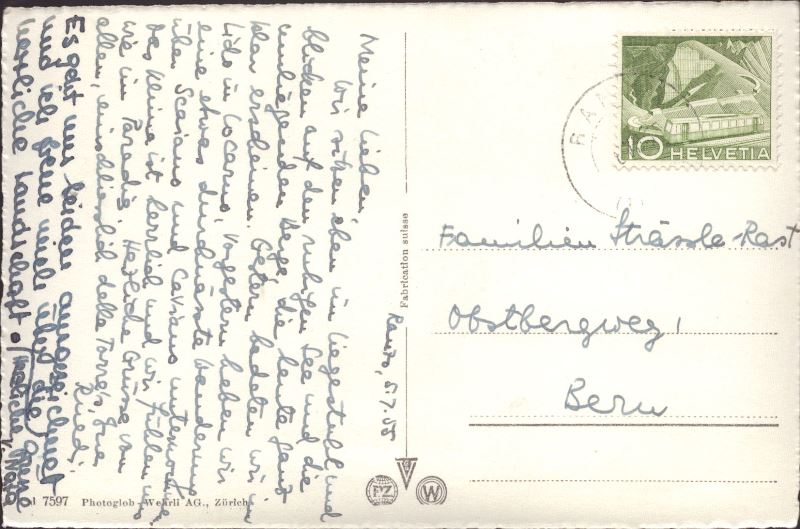 Ranzo, 5.7.55
Meine Lieben,
Wir sitzen eben im Liegestuhl und
blicken auf den ruhigen See und die
umliegenden Berge, die heute ganz
klar erscheinen. Gestern badeten wir im
Lido in Locarno. Vorgestern haben wir
eine etwas Wanderung
über Scaiano und Caviano unternommen.
Das Klima ist herrlich und wir fühlen uns
wie im Paradis. Herzliche Grüsse von
allen, einschliesslich della Torre's, Eure
Ruedi
Es geht uns beiden ausgezeichnet
und ich freue mich über die
herrliche Landschaft. Herzliche Grüsse
Familien Strässle-Rast
Obstbergweg 1
Bern
RAN
10 HELVETIA
Fabrication suisse
7597 Photoglob-Wehrli AG., Zürich
PZ
W